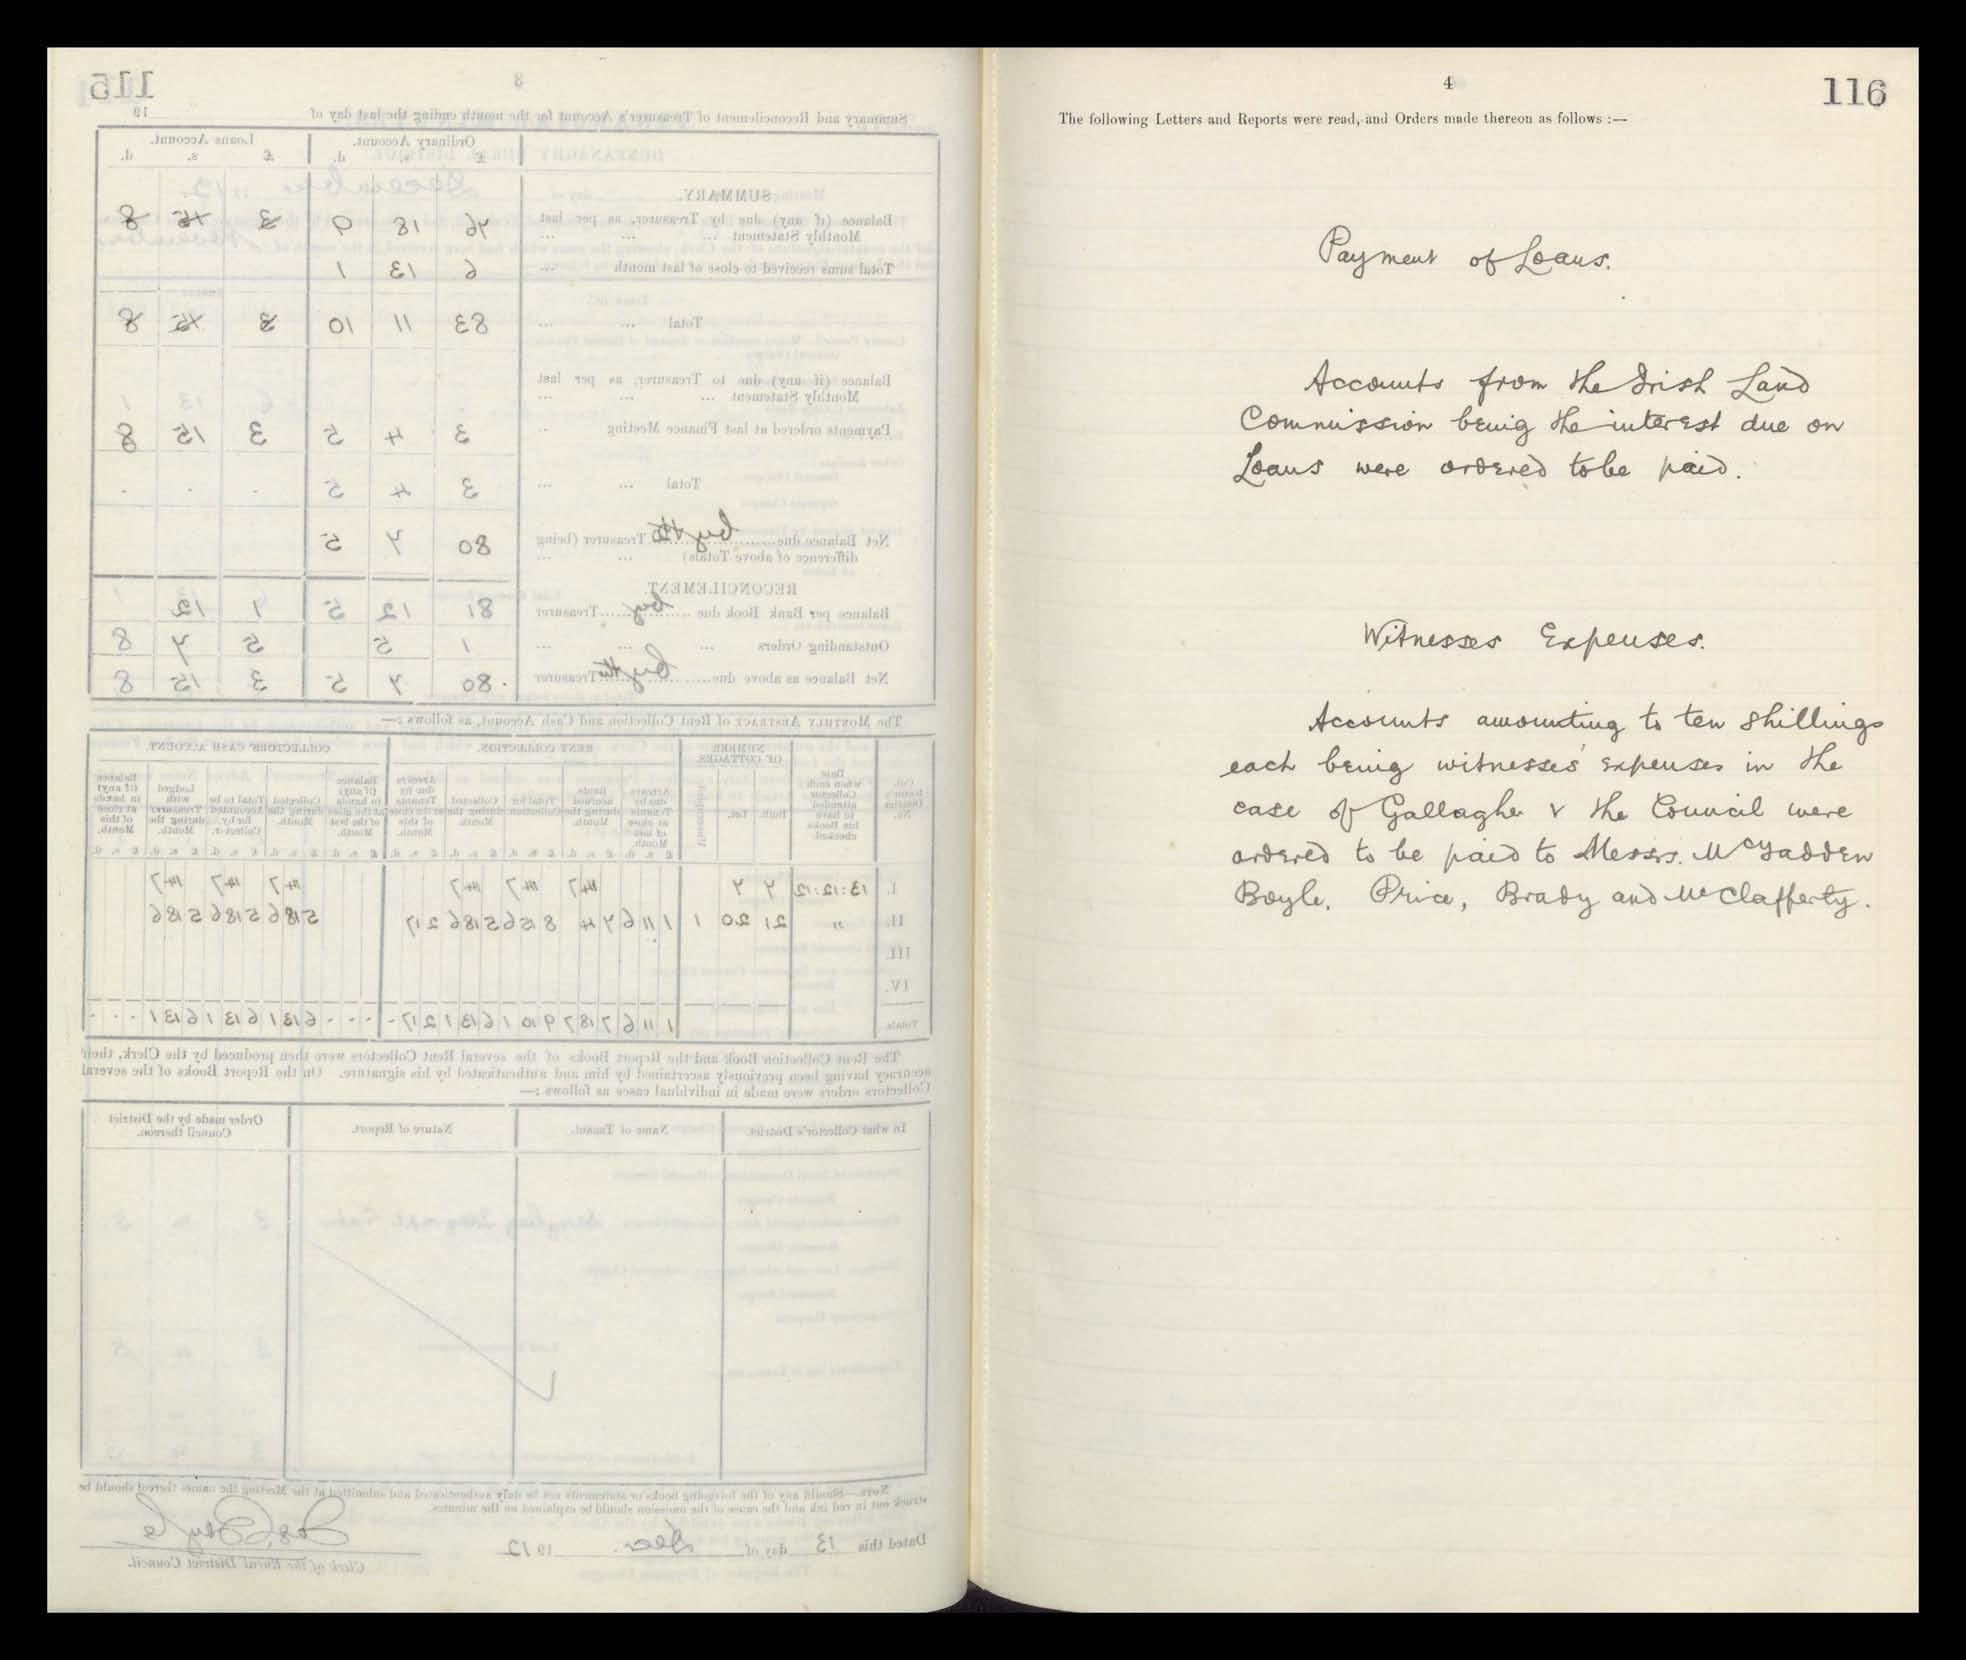 115
3
Summary and Reconcilement of Treasurer's Account for the month ending the last day of 19
Ordinary Account. Loans Account.
£ s. d. £ s. d.
SUMMARY.
Balance (if any) due by Treasurer, as per last
Monthly Statement ... ... ... 76 18 9 3 15 8
Total sums received to close of last month ... 6 13 1
Total ... ... 83 11 10 3 15 8
Balance (if any) due to Treasurer, as per last
Monthly Statement ... ... ...
Payments ordered at last Finance Meeting .. 3 4 5 3 15 8
Total ... ... 3 4 5 - - -
Net Balance due by the Treasurer (being
difference of above Totals) ... ... 80 7 5
RECONCILEMENT.
Balance per Bank Book due by Treasurer 81 12 5 1 12
Outstanding Orders ... ... ... 1 5 5 7 8
Net Balance as above due by the Treasurer 80 7 5 3 15 8
The Monthly Abstract of Rent Collection and Cash Account, as follows :—
NUMBER OF COTTAGES. RENT COLLECTION. COLLECTORS' CASH ACCOUNT.
I. 13:12:12 7 7 14 7 14 7 14 7 14 7 14 7 14 7
II. " 21 20 1 1 11 6 7 4 8 15 6 5 18 6 2 17 5 18 6 5 18 6 5 18 6
III.
IV.
Totals. 1 11 6 7 18 7 9 10 1 6 13 1 2 17 - - - - 6 13 1 6 13 1 6 13 1 - - -
The Rent Collection Book and the Report Books of the several Rent Collectors were then produced by the Clerk, their
accuracy having been previously ascertained by him and authenticated by his signature. On the Report Books of the several
Collectors orders were made in individual cases as follows :—
In what Collector's District. Name of Tenant. Nature of Report. Order made by the District
Council thereon.
Note.—Should any of the foregoing books or statements not be duly authenticated and submitted at the Meeting the names thereof should be
struck out in red ink and the cause of the omission should be explained on the minutes.
Dated this 13 day of Dec. 1912
Clerk of the Rural District Council.
4
116
The following Letters and Reports were read, and Orders made thereon as follows :—
Payment of Loans.
Accounts from the Irish Land
Commission being the interest due on
Loans were ordered to be paid.
Witnesses Expenses.
Accounts amounting to ten shillings
each being witnesses' expenses in the
case of Gallagher v the Council were
ordered to be paid to Messrs. McFadden
Boyle, Price, Brady and McClafferty.